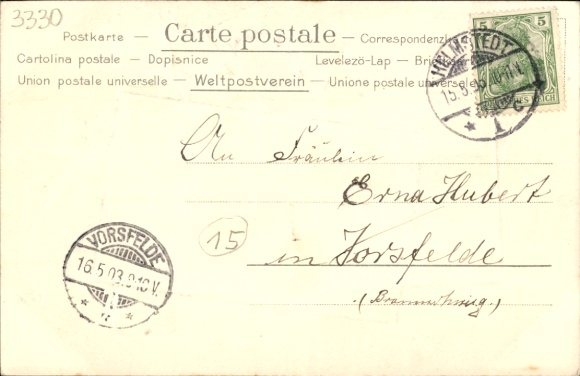 3330
Postkarte — Carte postale — Correspondenzkarte
Cartolina postale — Dopisnice Levelezö-Lap — Briefkaart
Union postale universelle — Weltpostverein — Unione postale universale
5 5
HELMSTEDT
15.5.03 10-11 V.
* 1 c
An Fräulein
Erna Hubert
15
in Vorsfelde
(Braunschweig)
VORSFELDE
16.5.03.9-10 V.
* *